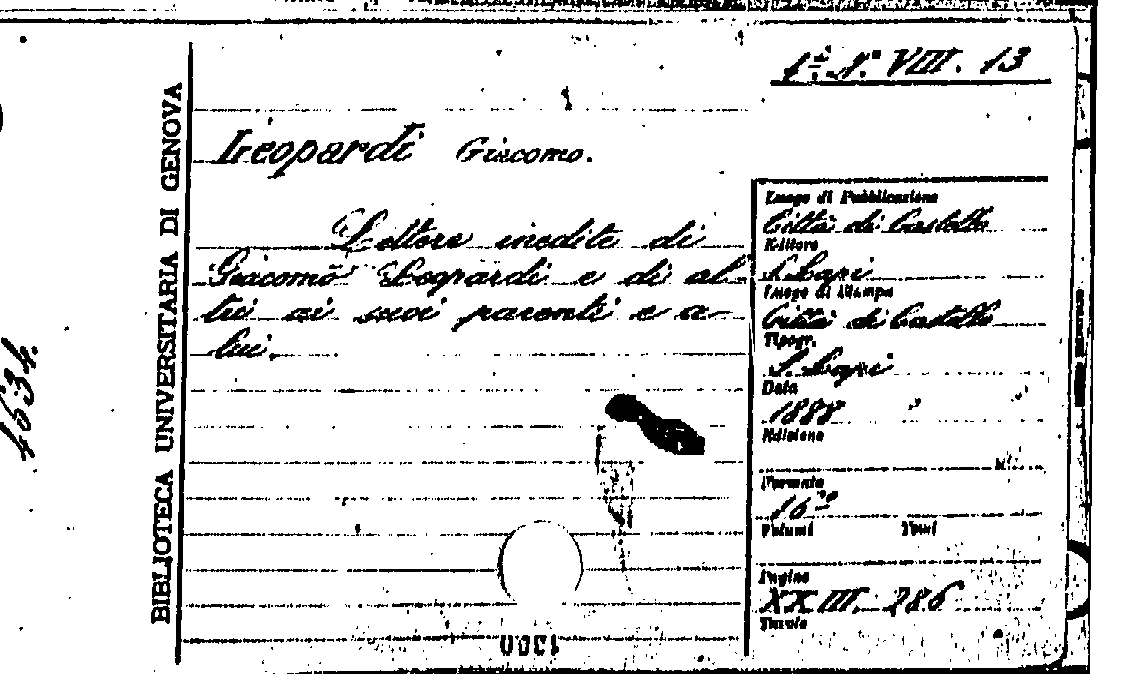 1ª. N.° VIII. 13
BIBLIOTECA UNIVERSITARIA DI GENOVA
Leopardi Giacomo.
Lettere inedite di
Giacomo Leopardi e di al-
tri ai suoi parenti e a
lui.
Luogo di Pubblicazione
Città di Castello
Editore
S. Lapi
Luogo di Stampa
Città di Castello
Tipogr.
S. Lapi
Data
1888
Edizione
Formato
16°
Volumi Tomi
Pagine
XXIII. 286
Tavole
4634.